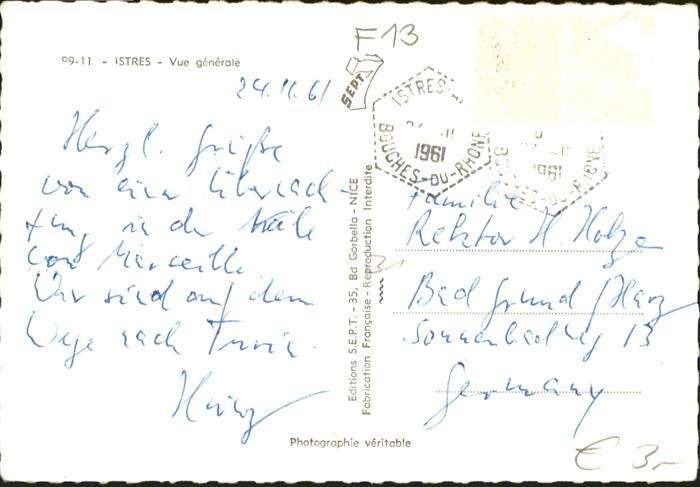 F13
99-11 - ISTRES - Vue générale
24.11.61
Herzl. Grüße
von einer Übernach-
tung in der Nähe
von Marseille.
Wir sind auf dem
Wege nach
SEPT
ISTRES
BOUCHES-DU-RHONE
1961
BOUCHES-DU-RHONE
1961
Familie
Rektor H.
Bad Grund/Harz
13
Germany
Editions S.E.P.T. - 35, Bd Gorbella - NICE
Fabrication Française - Reproduction Interdite
Photographie véritable
€ 3,-